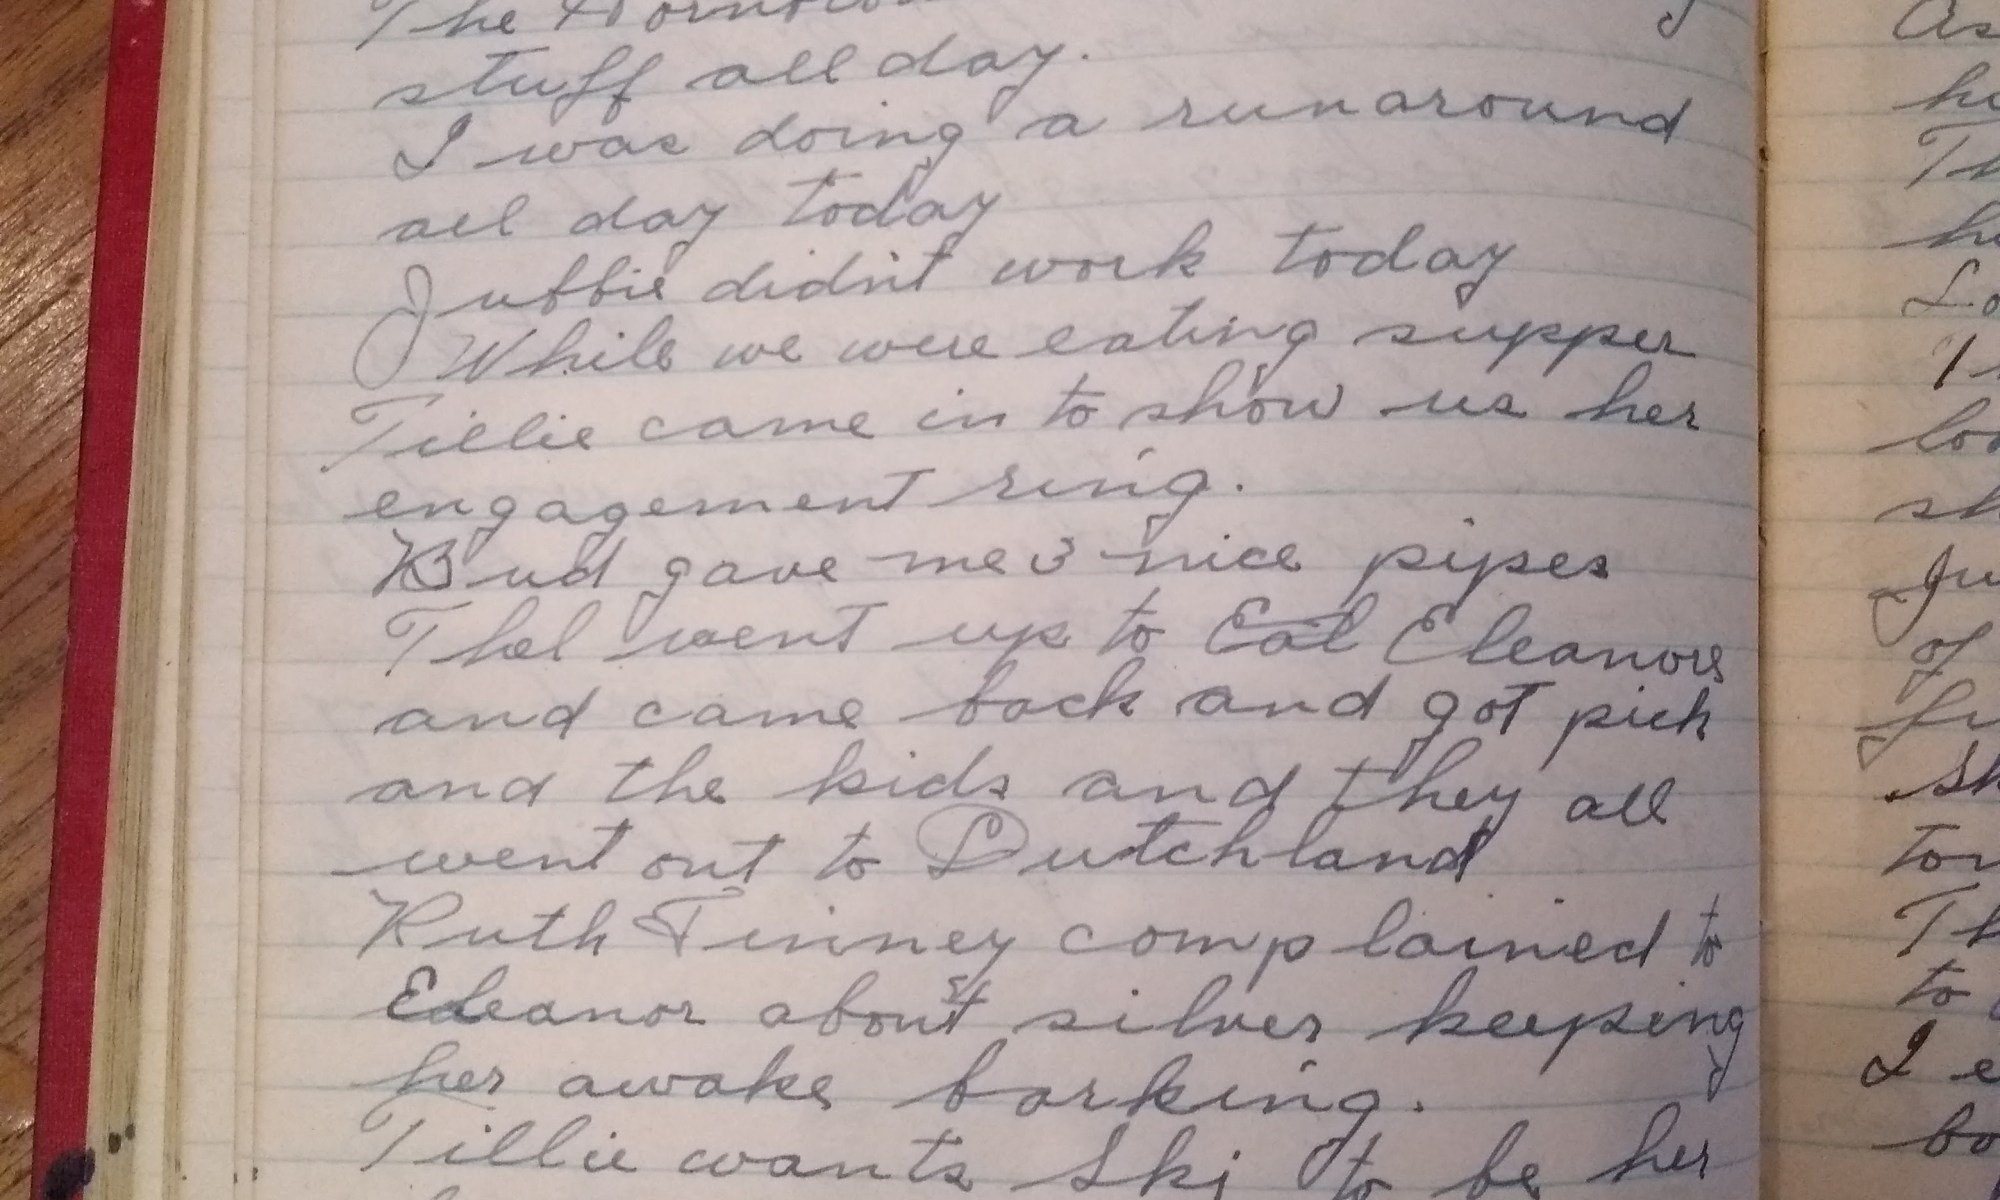 The
stuff all day.
I was doing a runaround
all day today
Jubbie didn't work today
While we were eating supper
Tillie came in to show us her
engagement ring.
Bud gave me 3 nice pipes
Thel went up to Eat Eleanors
and came back and got pick
and the kids and they all
went out to Dutchland
Ruth Tinney complained to
Eleanor about silver keeping
her awake barking.
Tillie wants Ski to be her
As
Th
to
I